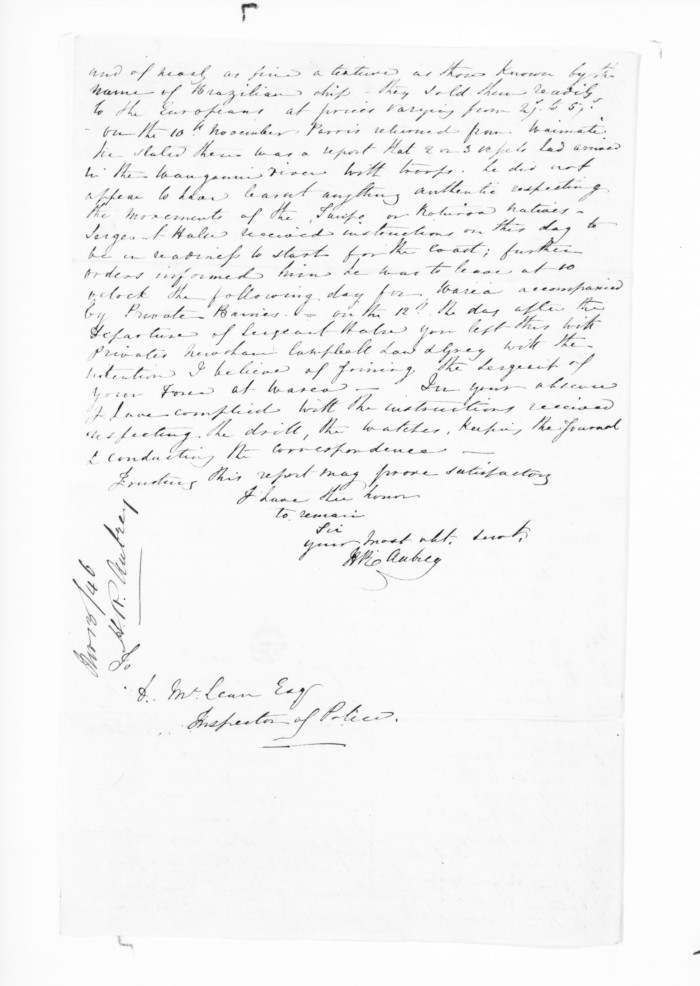 and of nearly as fine a texture as those known by the
name of Brazilian chip - they sold them readily
to the Europeans at prices varying from 2/. to 5/.
- On the 10th November Parris returned from Waimate
he stated there was a report that 2 or 3 vessels had arrived
in the Wanganui river with troops. he did not
appear to have learnt anything authentic respecting
the movements of the Taupo or Rotorua natives -
Sergeant Halse received instructions on this day to
be in readiness to start for the Coast; further
orders informed him he was to leave at 10
o'clock the following day for Warea accompanied
by Private - on the 12th. the day after the
departure of Sergeant Halse you left this with
Privates Newsham Campbell and Grey with the
intention I believe of joining the Sergeant of
your Force at Warea - In your absence
I have complied with the instructions received
respecting the drill, the watches, keeping the Journal
& conducting the correspondence -
Trusting this report may prove satisfactory
I have the honor
to remain
Sir
your most obt. servt.
H R Aubrey
Nov 13/46
H. R. Aubrey
D. McLean Esq
Inspector of Police.